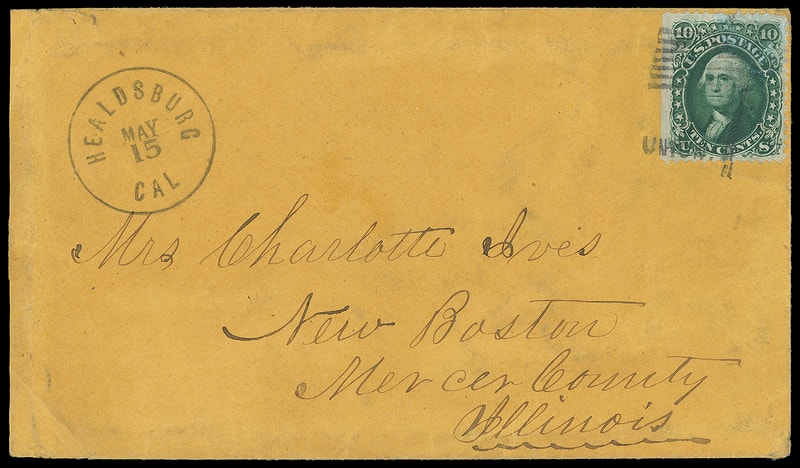 HEALDSBURG
MAY
15
CAL
10 10
U.S. POSTAGE
TEN CENTS
U S
Mrs Charlotte Ives
New Boston
Mercer County
Illinois